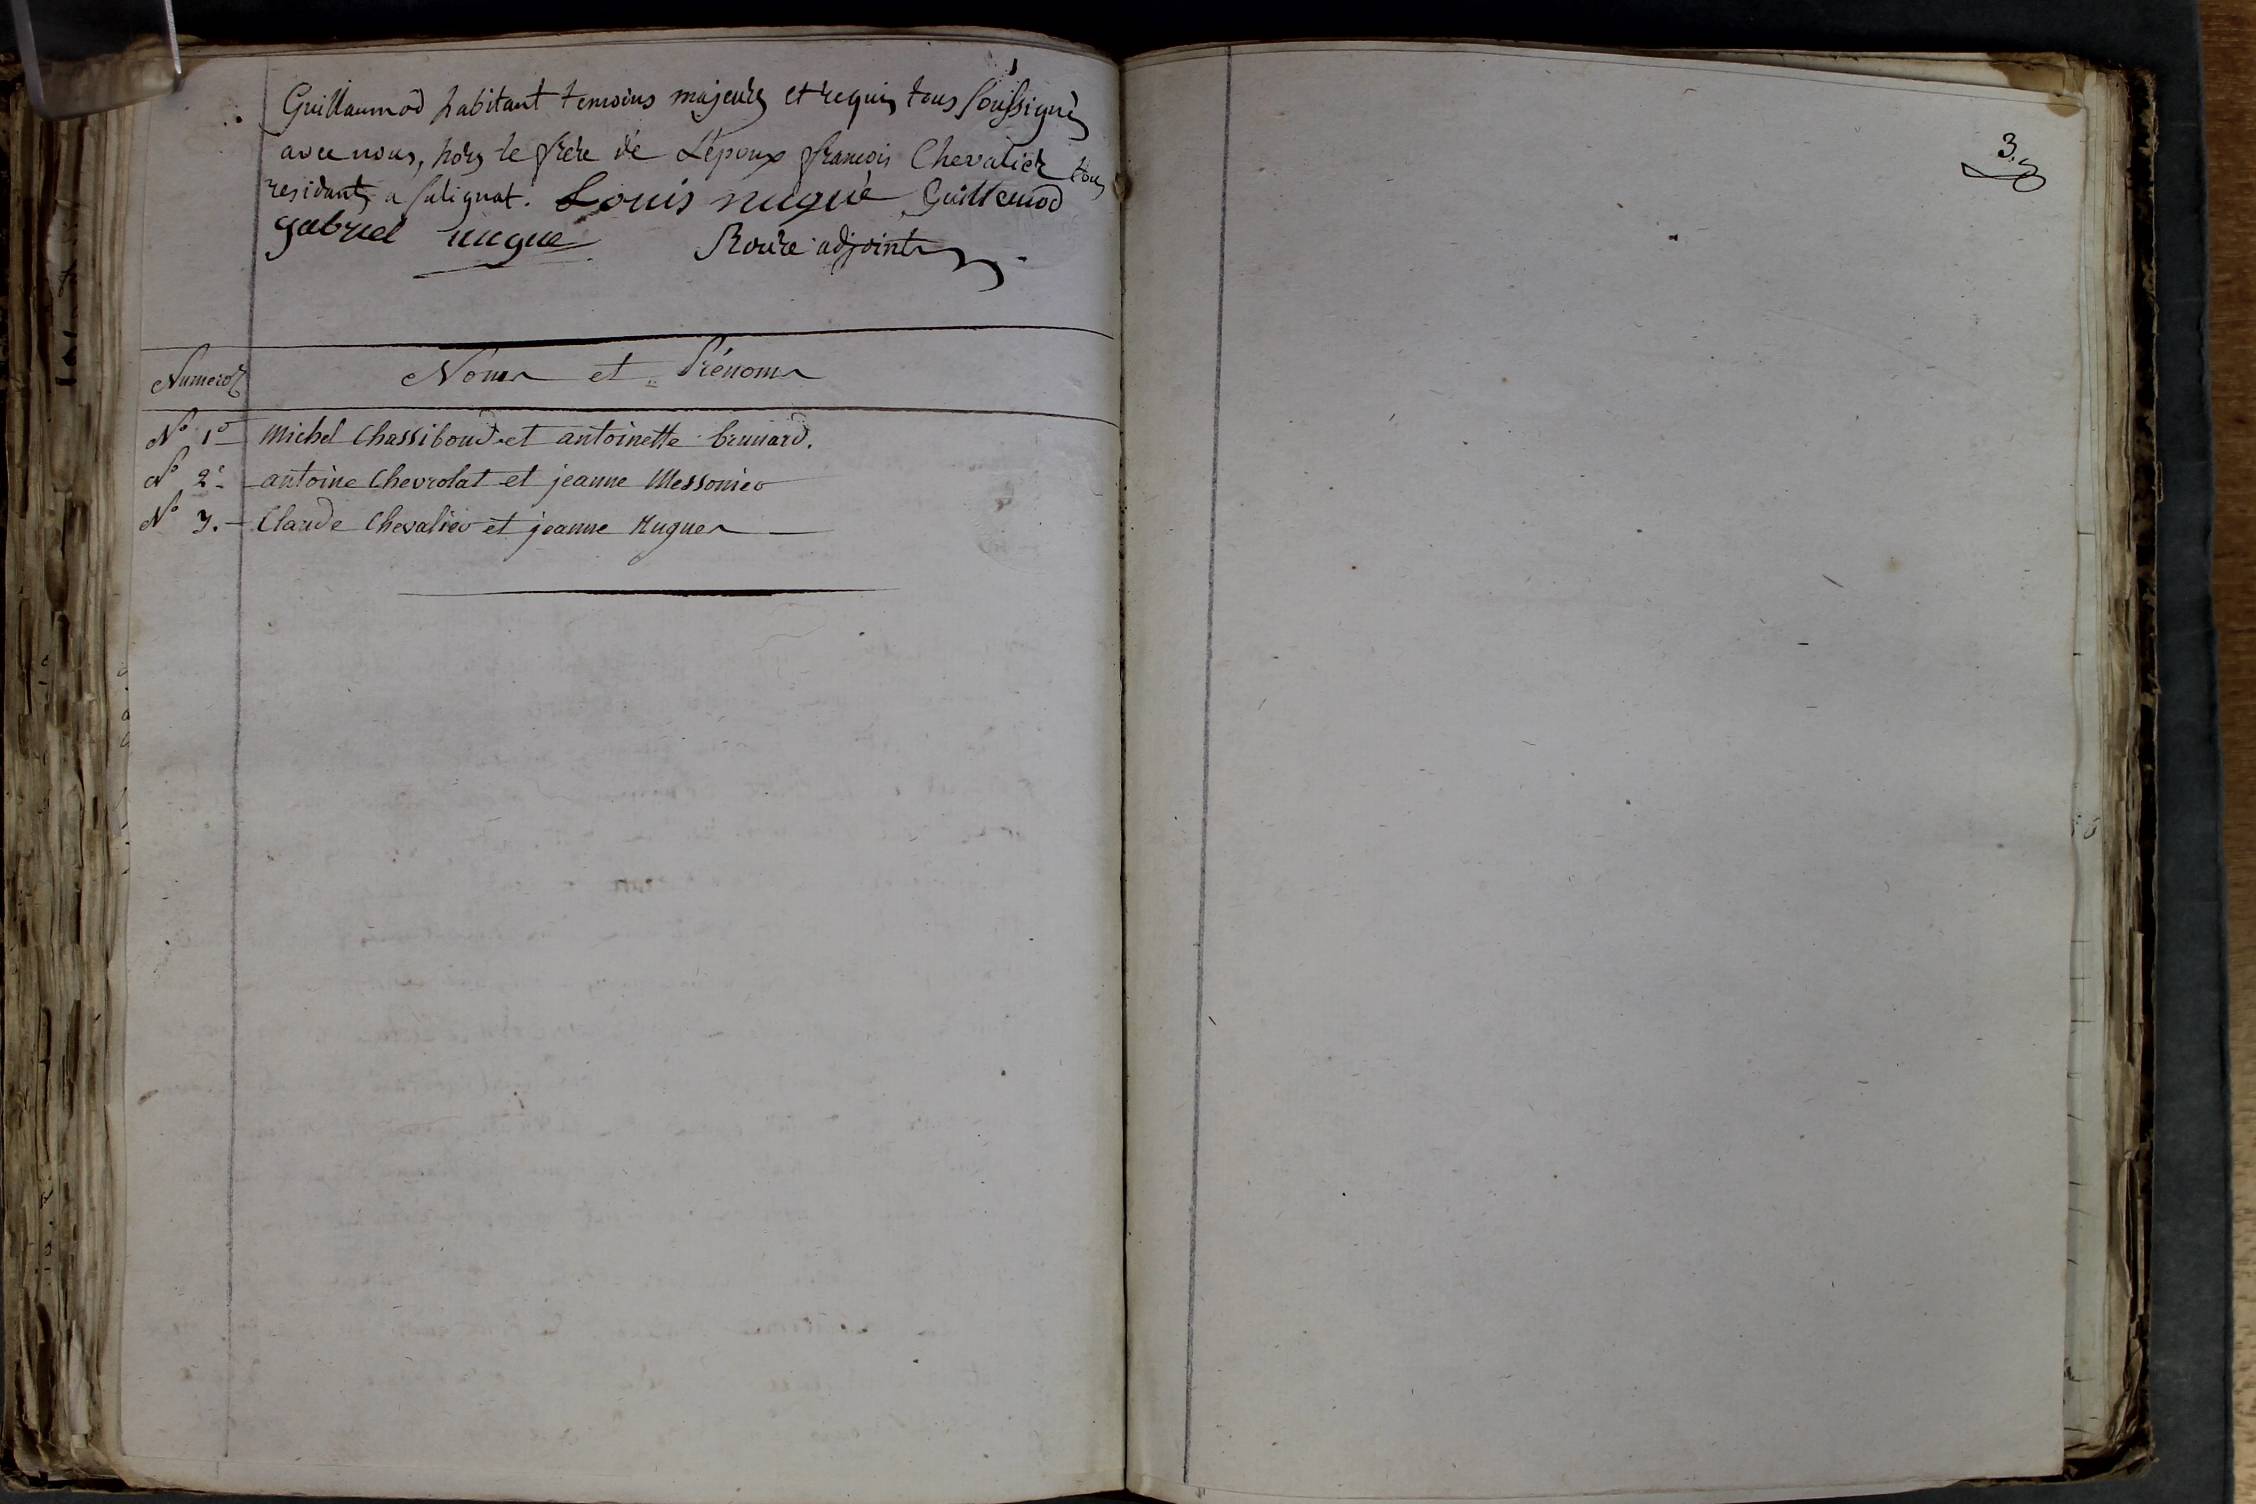 Guillaumod habitant temoins majeurs et requis tous soussignés
avec nous, hors le frere de L'époux francois Chevalier tous
residants a salignat. Louis nugue Guillemod
gabriel nugue Roure adjoint
Numeros Noms et Prénoms
N° 1° Michel Chassiboud et antoinette brunard.
N° 2° antoine Chevrolat et jeanne Messonier
N° 3. Claude Chevalier et jeanne Nugues
3.